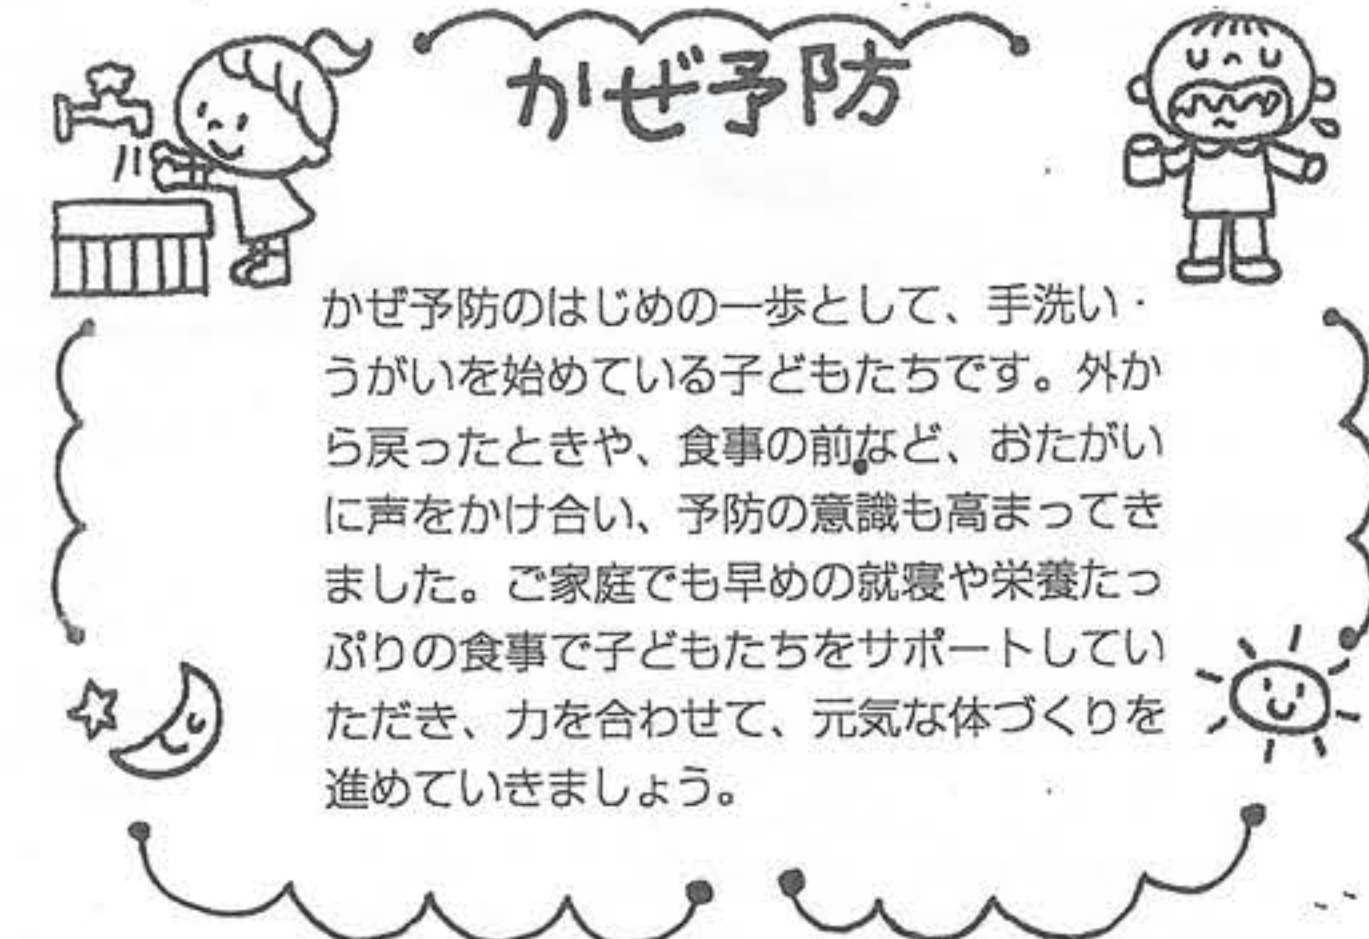 かぜ予防
かぜ予防のはじめの一歩として、手洗い・
うがいを始めている子どもたちです。外か
ら戻ったときや、食事の前など、おたがい
に声をかけ合い、予防の意識も高まってき
ました。ご家庭でも早めの就寝や栄養たっ
ぷりの食事で子どもたちをサポートしてい
ただき、力を合わせて、元気な体づくりを
進めていきましょう。